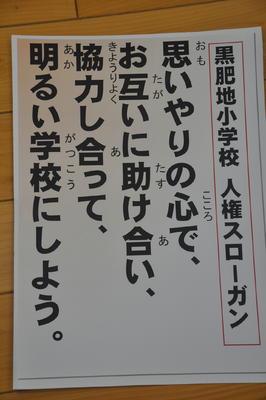 黒肥地小学校 人権スローガン
思いやりの心で、
お互いに助け合い、
協力し合って、
明るい学校にしよう。
おも
こころ
たが
たす
あ
きょうりょく
あ
あか
がっこう